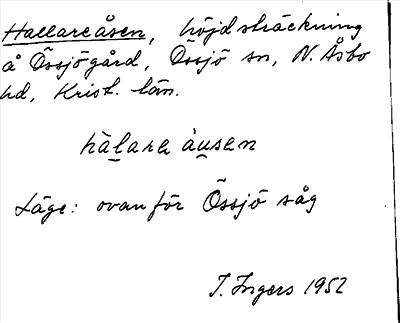 Hallareåsen, höjdsträckning
å Össjögård, Össjö sn, N. Åsbo
hd, Krist. län.
hàlara àusen
Läge: ovanför Össjö såg
I. Ingers 1952